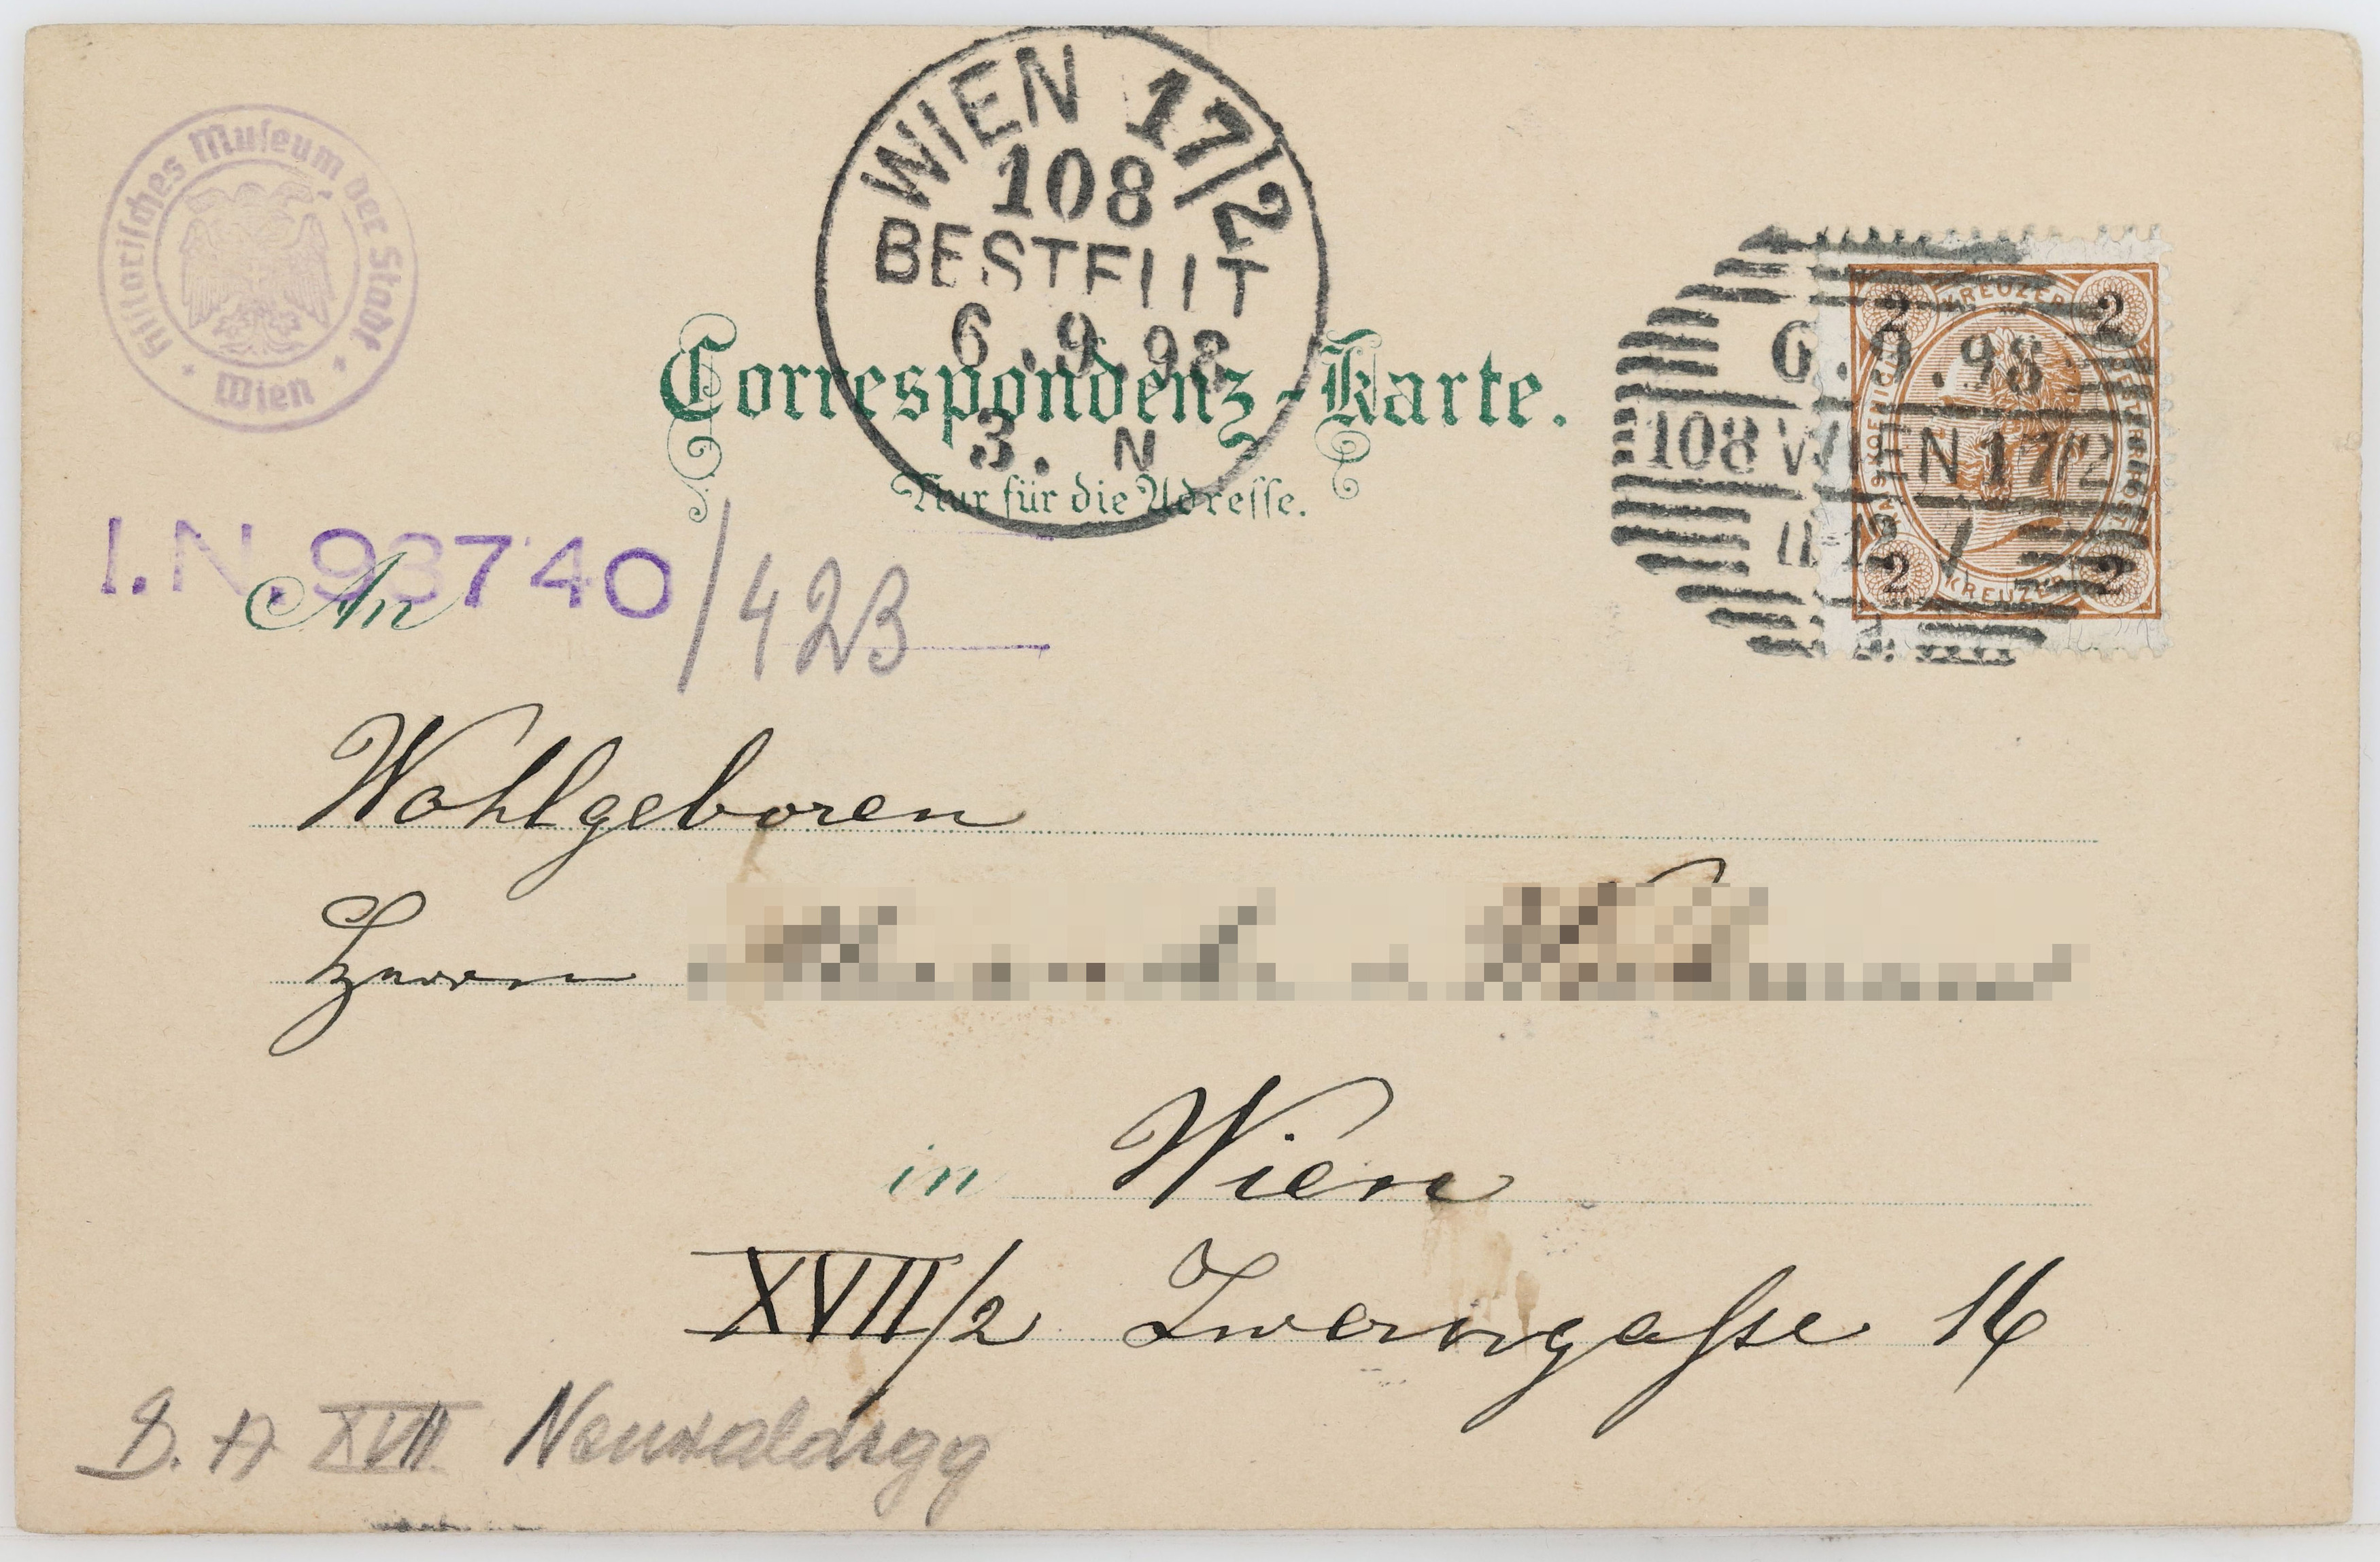 Historisches Museum der Stadt
Wien
WIEN 17/2
108
BESTELLT
6.9.98
3. N
Correspondenz-Karte.
Nur für die Adresse.
KREUZER
2 2
6.9.98
108 WIEN 17/2
2 2
KREUZER
I.N. 93740/423
An
Wohlgeboren
Herrn
in Wien
XVII/2 Zwerngasse 16
B. A XVII Neuwaldegg